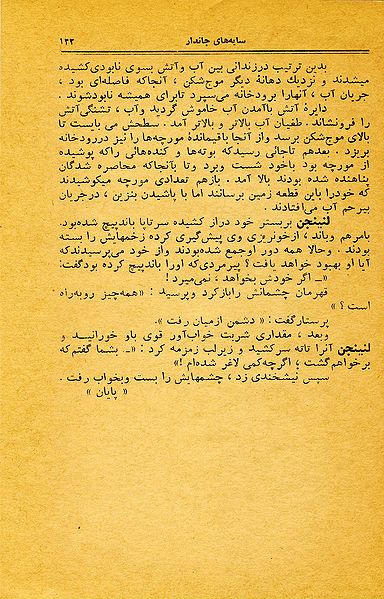 سایه‌های جاندار ۱۲۳
بدین ترتیب درزندانی بین آب وآتش بسوی نابودی‌کشیده
میشدند و نزدیك دهانهٔ دیگر موج‌شکن ، آنجاکه فاصله‌ای بود ،
جریان آب ، آنهارا برودخانه می‌سپرد تابرای همیشه نابودشوند .
دایرهٔ آتش باآمدن آب خاموش گردید وآب ، تشنگی‌آتش
را فرونشاند . طغیان آب بالاتر و بالاتر آمد . سطحش می بایست تا
بالای موج‌شکن برسد واز آنجا باقیماندهٔ مورچه‌ها را نیز دررودخانه
بریزد . بعدهم تاجائی رسیدکه بوته‌ها و کنده‌هائی راکه پوشیده
از مورچه بود باخود شست وبرد وتا بآنجاکه محاصره شدگان
پناهنده شده بودند بالا آمد . بازهم تعدادی مورچه میکوشیدند
که خودرا باین قطعه زمین برسانند اما با پاشیدن بنزین ، درجریان
بیرحم آب می‌افتادند .
لنینجن بربستر خود دراز کشیده سرتاپا باندپیچ شده‌بود.
بامرهم وباند ، ازخونریزی وی پیش‌گیری کرده زخمهایش را بسته
بودند . وحالا همه دور اوجمع شده‌بودند واز خود می‌پرسیدندکه
آیا او بهبود خواهد یافت؟ پیرمردی‌که اورا باندپیچ کرده بودگفت:
«ـ اگر خودش بخواهد ، نمی‌میرد !
قهرمان چشمانش رابازکرد وپرسید : «همه‌چیز روبه‌راه
است ؟ »
پرستارگفت : « دشمن ازمیان رفت ».
وبعد ، مقداری شربت خواب‌آور قوی باو خورانید و
لنینجن آنرا تاته سرکشید و زیرلب زمزمه کرد : «ـ بشما گفتم‌که
برخواهم‌گشت ؛ اگرچه‌کمی لاغر شده‌ام !»
سپس نیشخندی زد ، چشمهایش را بست وبخواب رفت .
« پایان »